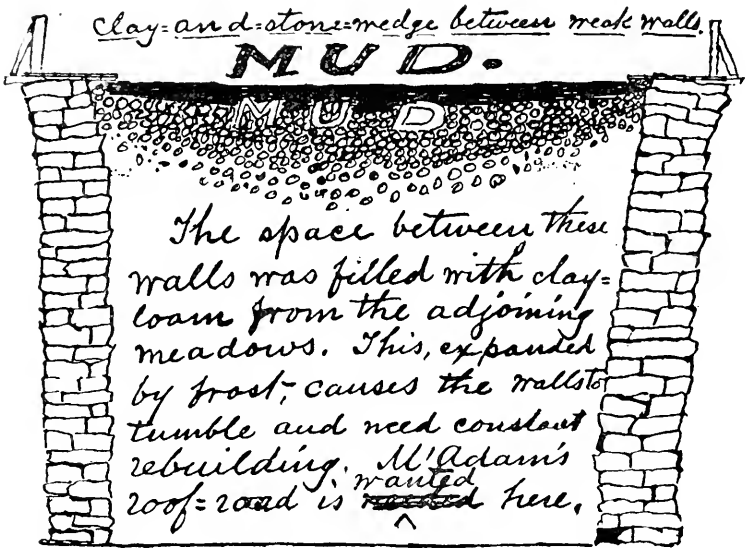 clay=and=stone=wedge between weak walls.
MUD.
MUD
The space between these
walls was filled with clay=
loam from the adjoining
meadows. This, expanded
by frost, causes the walls to
tumble and need constant
rebuilding. M'Adam's
wanted
roof=road is here.